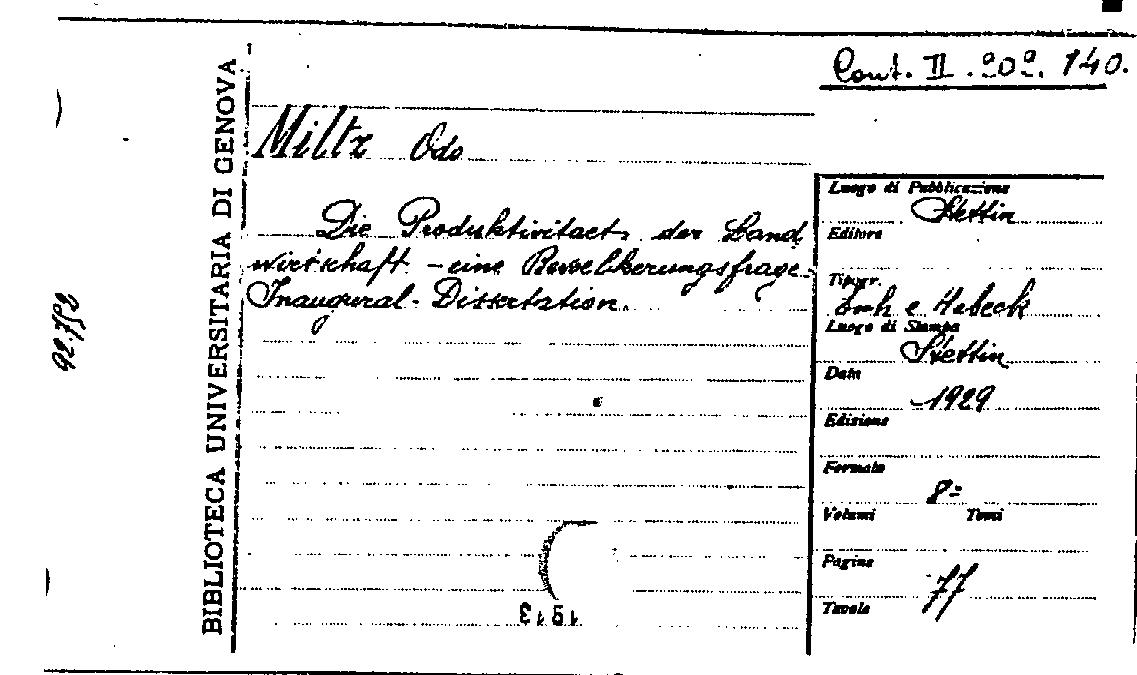 Cont. II. 20º. 140.
BIBLIOTECA UNIVERSITARIA DI GENOVA
92.752
Miltz Odo
Die Produktivitaet der Land
wirtschaft - eine Bevoelkerungsfrage
Inaugural-Dissertation.
Luogo di Pubblicazione
Stettin
Editore
Tipogr.
e Habeck
Luogo di Stampa
Stettin
Data
1929
Edizione
Formato
8º
Volumi Tomi
Pagine
77
Tavole